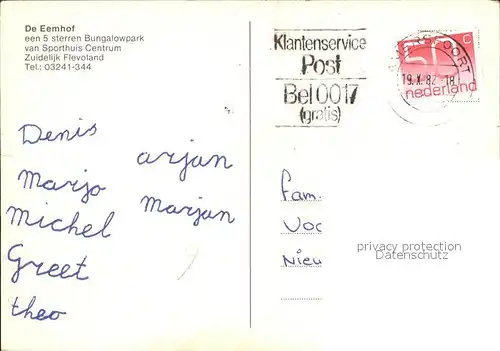 De Eemhof
een 5 sterren Bungalowpark
van Sporthuis Centrum
Zuidelijk Flevoland
Tel.: 03241-344
Klantenservice
Post
Bel 0017
(gratis)
AMERSFOORT
19.X.82.18
nederland
Denis
arjan
Marjo
Marjan
Michel
Greet
theo
Fam.
Voc
Nieu
privacy protection
Datenschutz